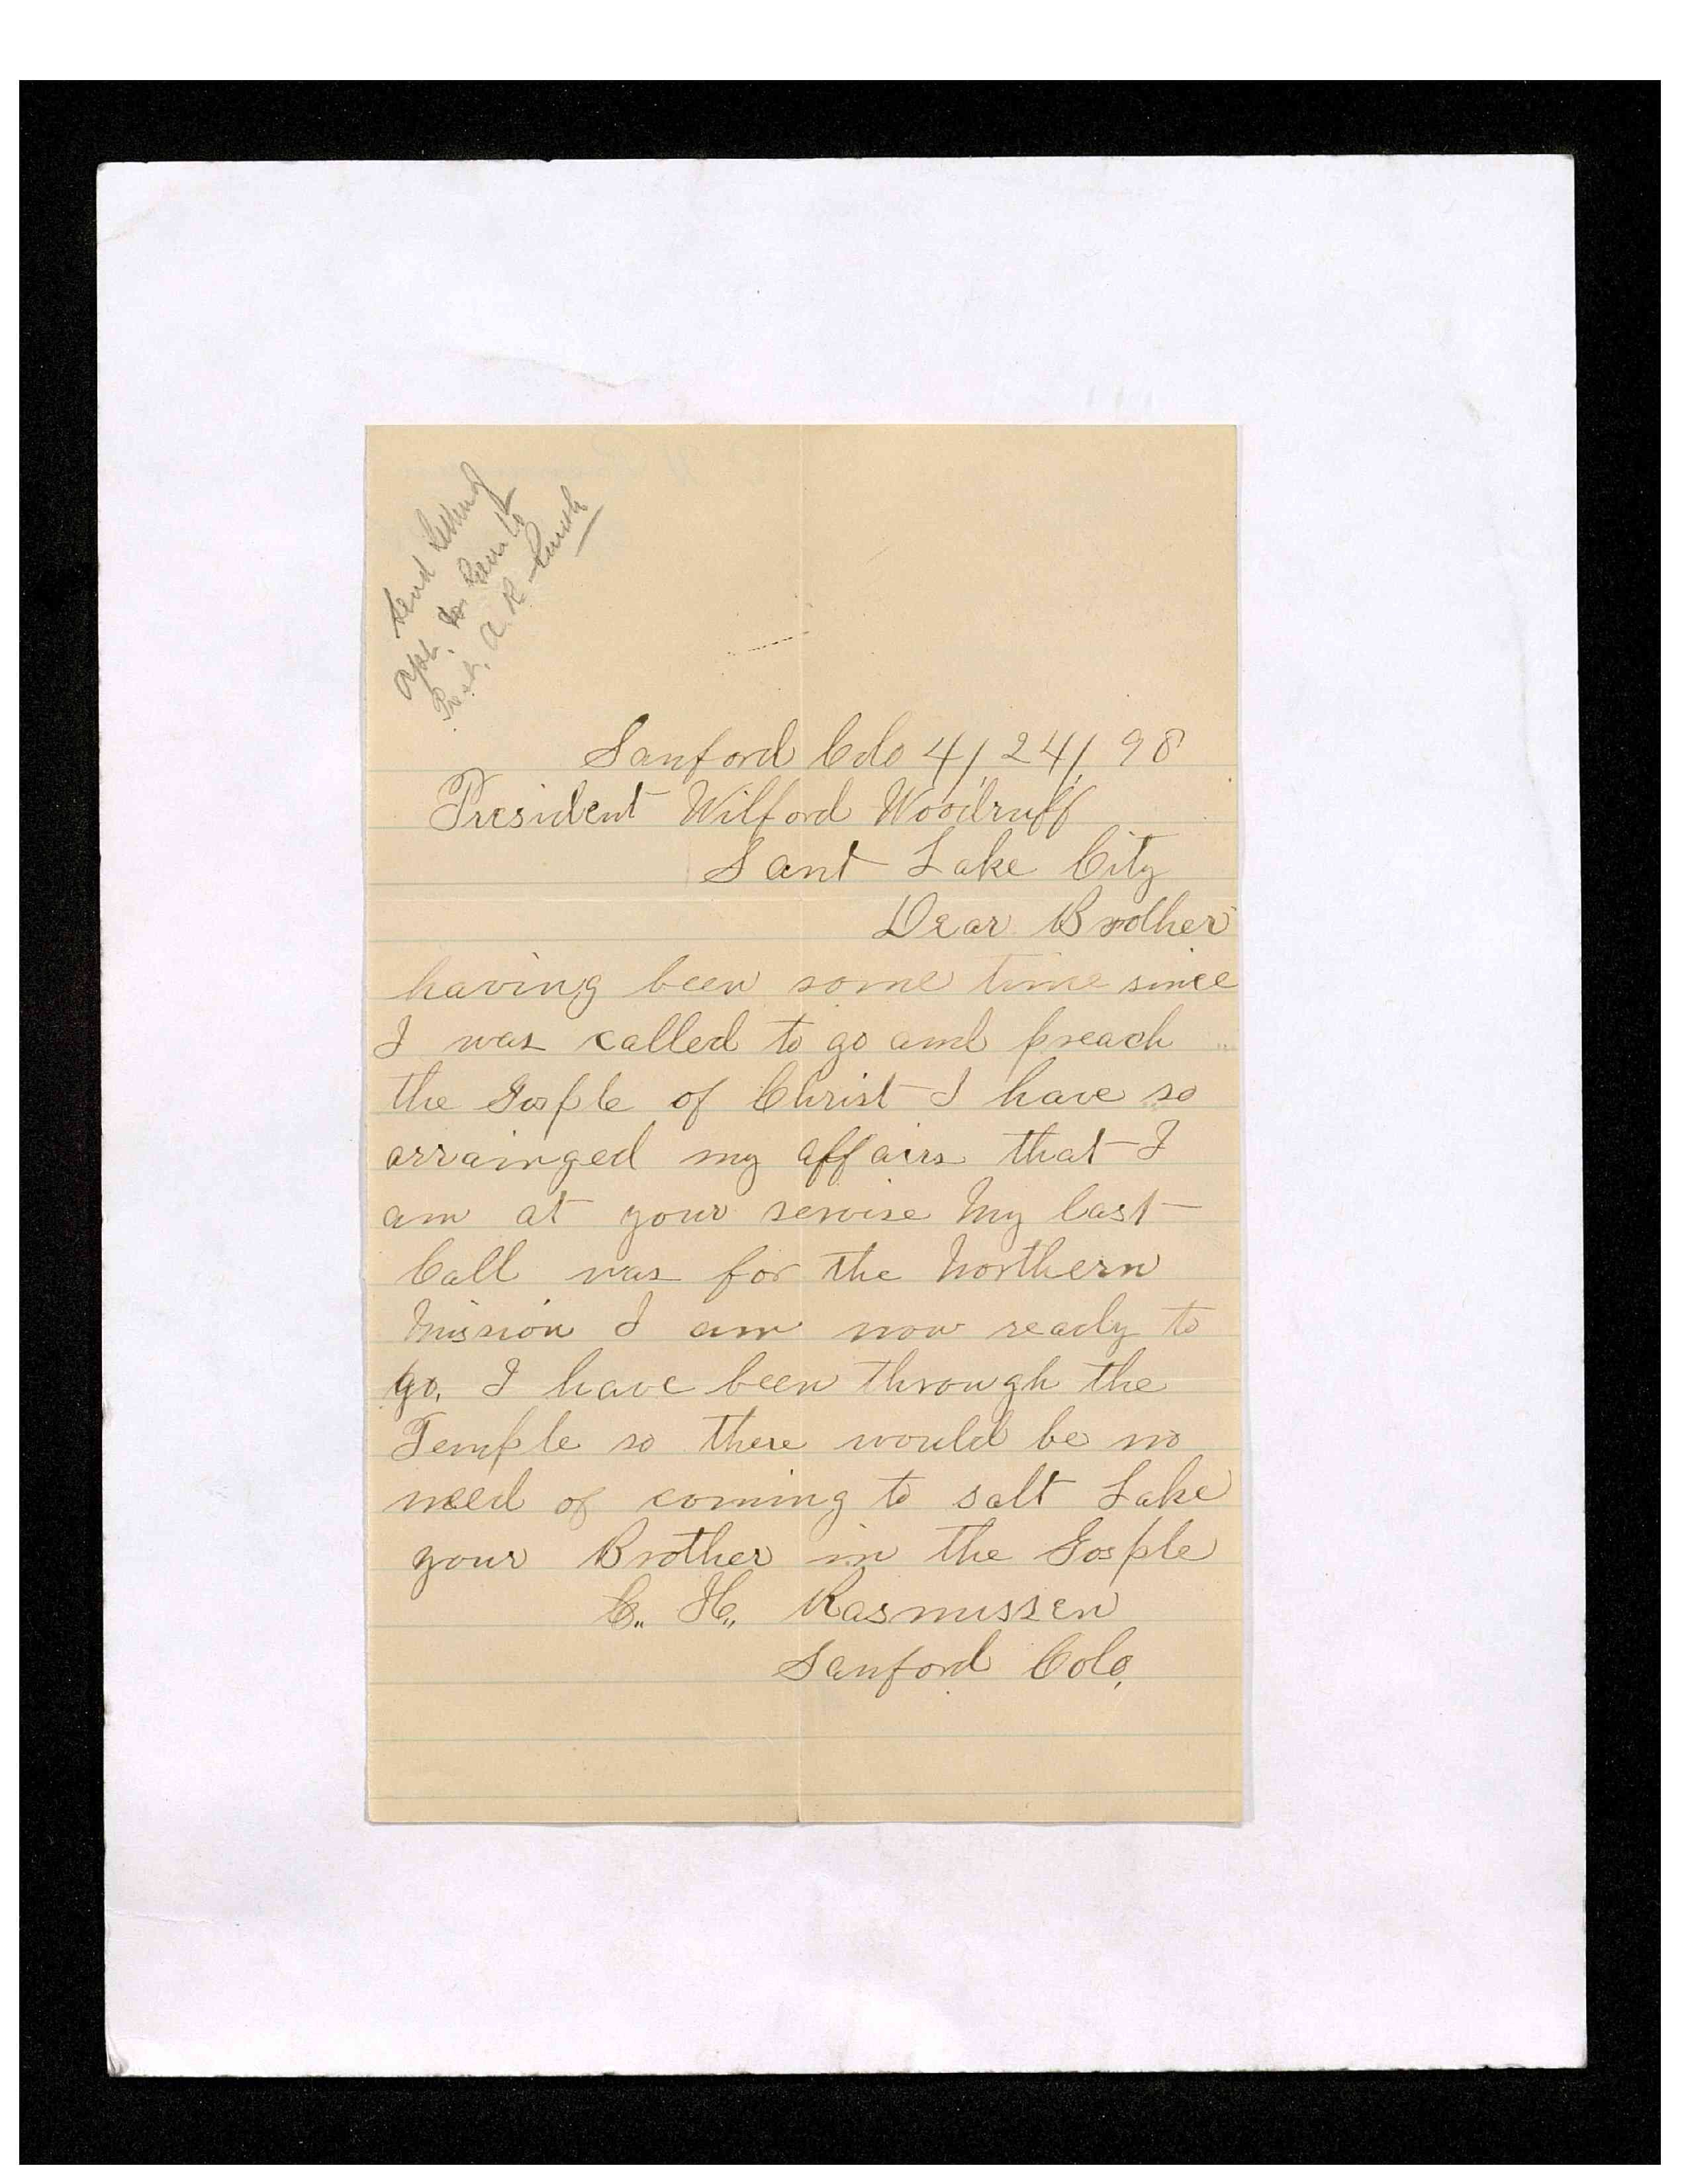 Send letter of
appt. to him to
Prest. A. R. Smith
Sanford Colo 4/24/98
President Wilford Woodruff
Sant Lake City
Dear Brother
having been some time since
I was called to go and preach
the Gosple of Christ I have so
arrainged my affairs that I
am at your servise My last
Call was for the Northern
Mission I am now ready to
go. I have been through the
Temple so there would be no
need of coming to salt Lake
your Brother in the Gosple
C. H. Rasmussen
Sanford Colo,